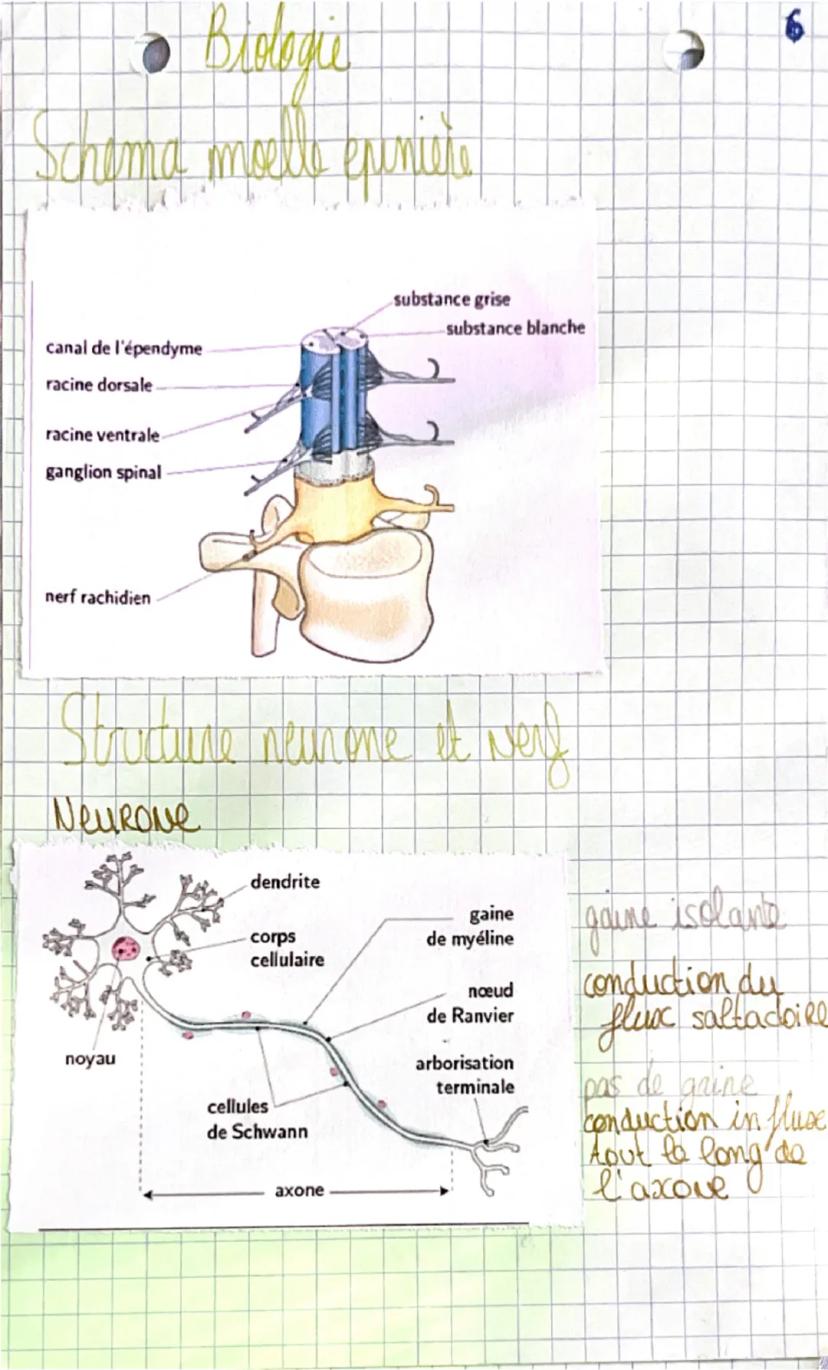 6
Biologie
Schema moelle epinière
substance grise
substance blanche
canal de l'épendyme
racine dorsale
racine ventrale
ganglion spinal
nerf rachidien
Structure neurone et nerf
Neurone
dendrite
corps
cellulaire
gaine
de myéline
nœud
de Ranvier
noyau
arborisation
terminale
cellules
de Schwann
axone
gaine isolante
conduction du
flux saltadoire
pas de gaine
conduction influx
tout le long de
l'axone